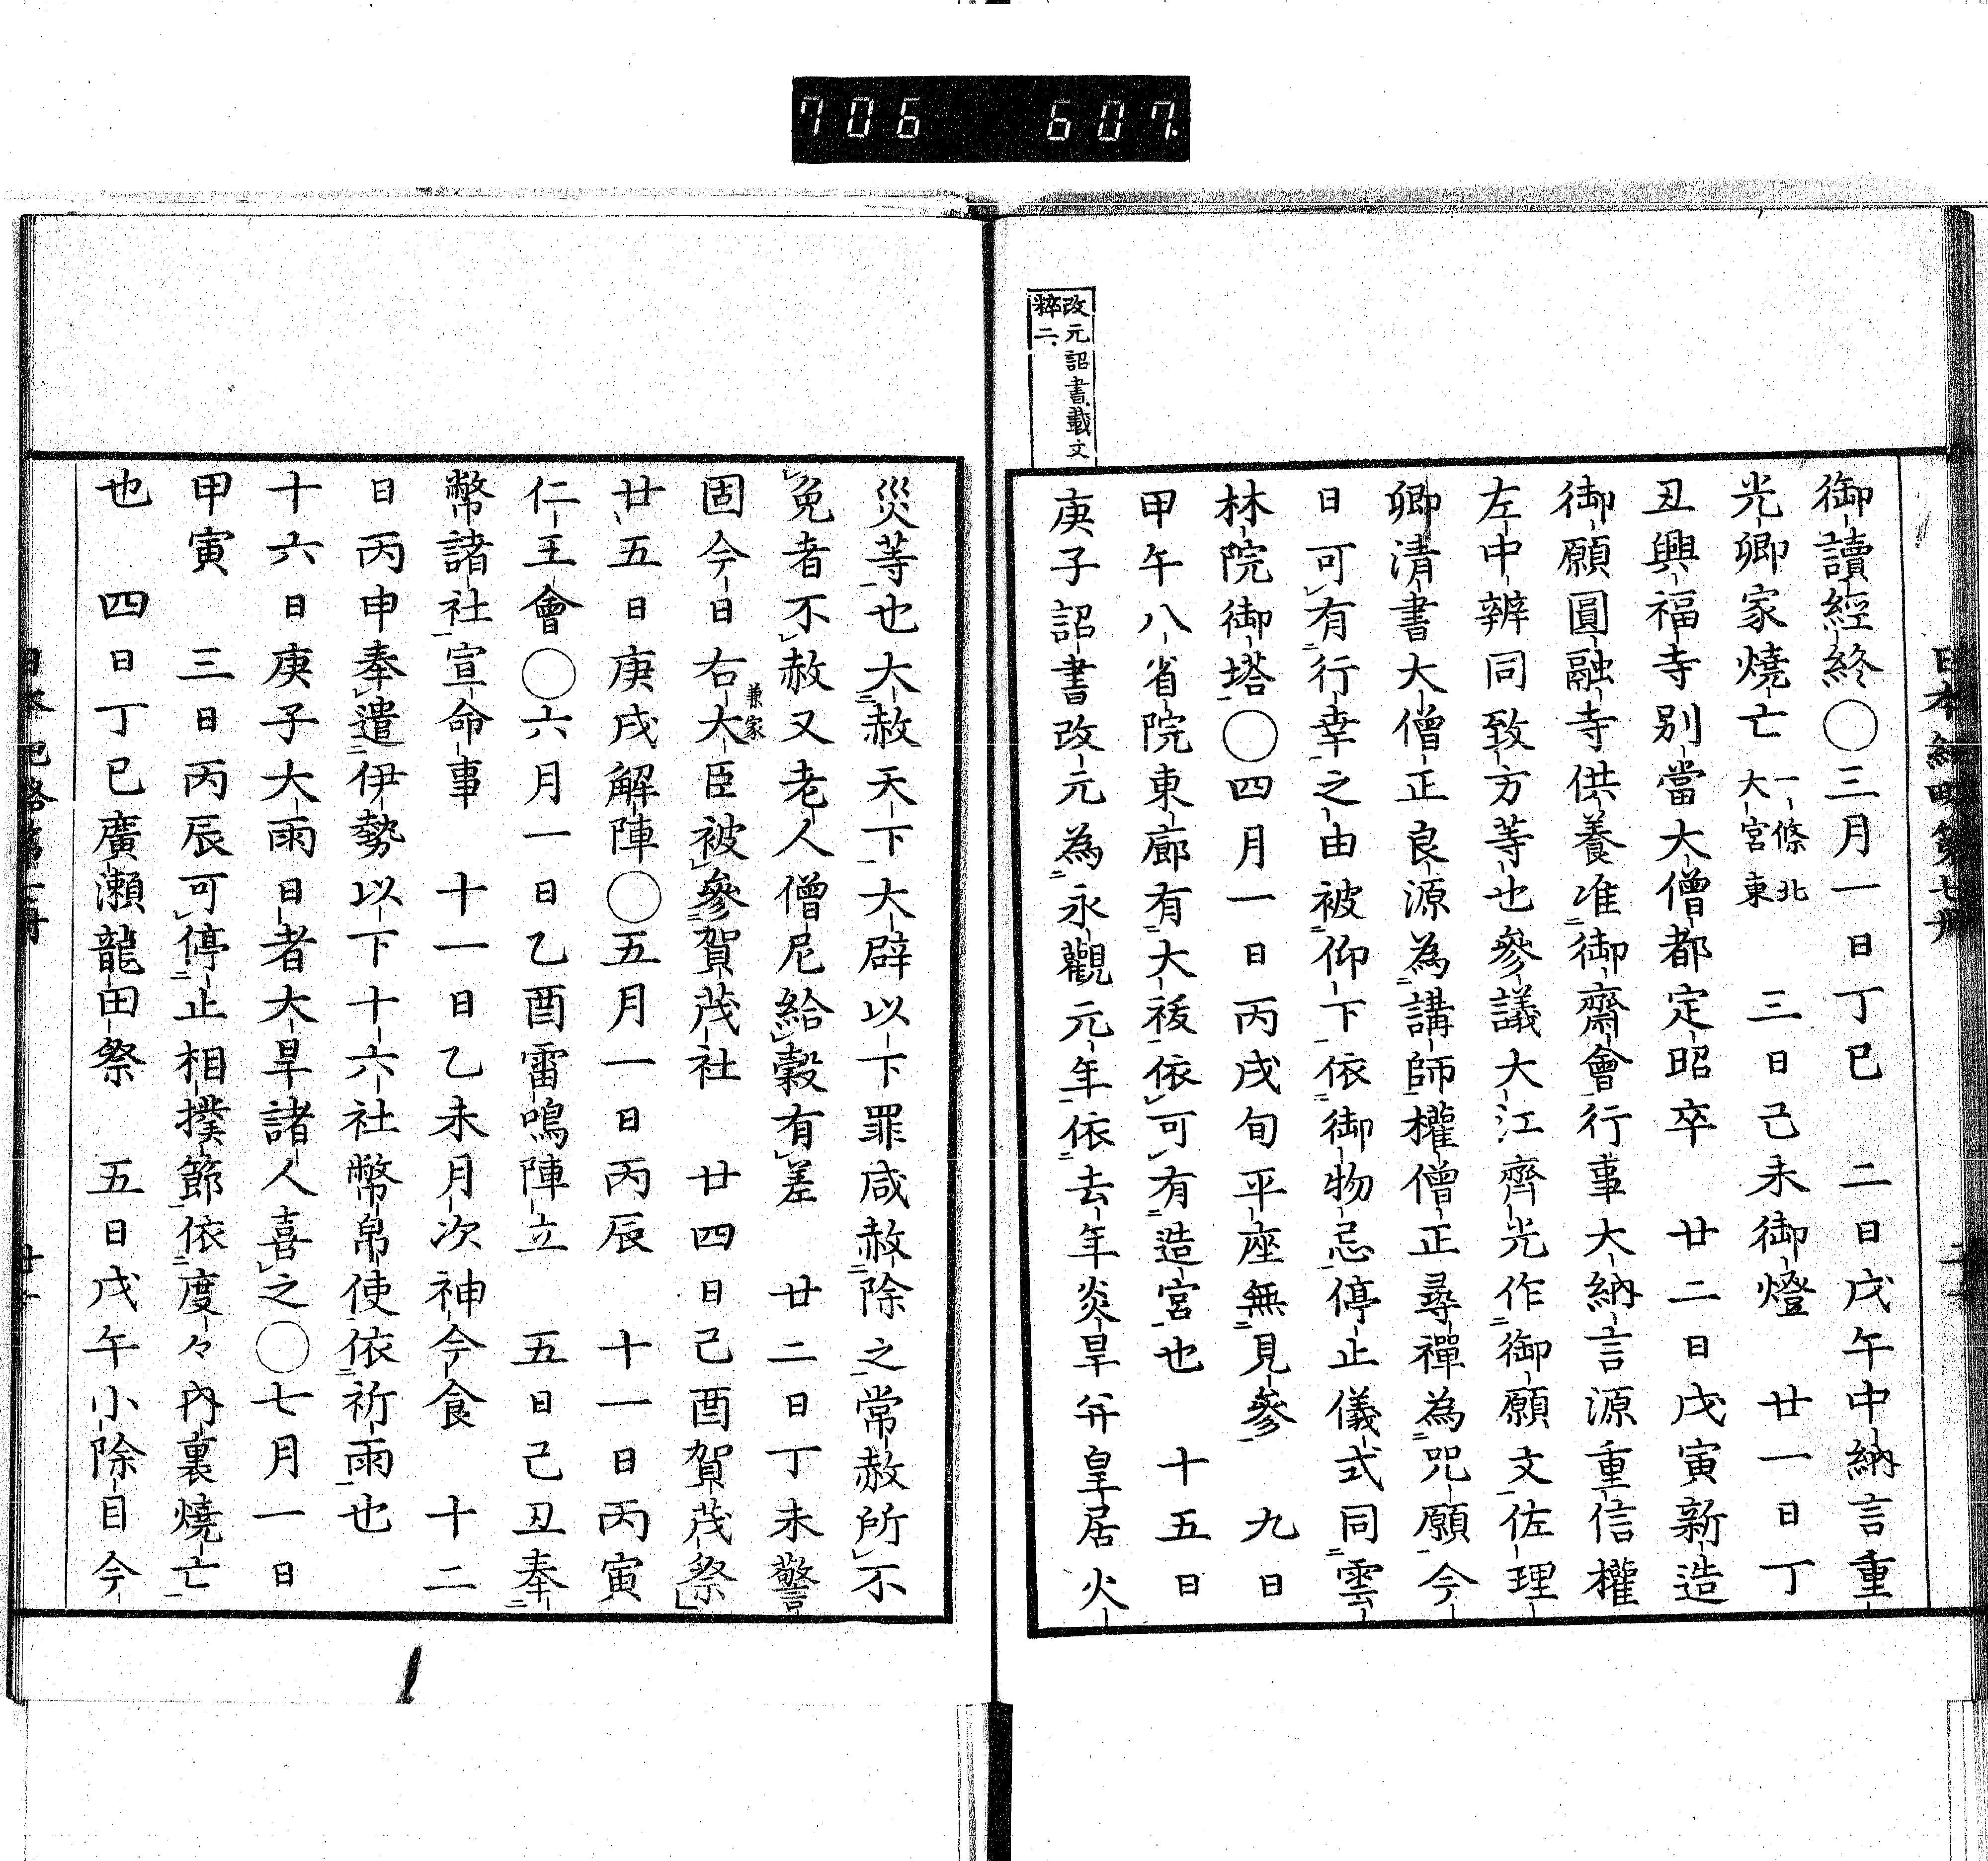 706 607.
改元詔書載文
粹二
御讀經終〇三月一日丁巳 二日戊午中納言重
光卿家燒亡一條北大宮東 三日己未御燈 廿一日丁
丑興福寺別當大僧都定昭卒 廿二日戊寅新造
御願圓融寺供養准御齋會行事大納言源重信權
左中辨同致方等也參議大江齊光作御願文佐理
卿清書大僧正良源為講師權僧正尋禪為咒願今
日可有行幸之由被仰下依御物忌停止儀式同雲
林院御塔〇四月一日丙戌旬平座無見參 九日
甲午八省院東廊有大祓依可有造宮也 十五日
庚子詔書改元為永觀元年依去年炎旱并皇居火
災等也大赦天下大辟以下罪咸赦除之常赦所不
免者不赦又老人僧尼給穀有差 廿二日丁未警
固今日右大臣兼家被參賀茂社 廿四日己酉賀茂祭
廿五日庚戌解陣〇五月一日丙辰 十一日丙寅
仁王會〇六月一日乙酉雷鳴陣立 五日己丑奉
幣諸社宣命事 十一日乙未月次神今食 十二
日丙申奉遣伊勢以下十六社幣帛使依祈雨也
十六日庚子大雨日者大旱諸人喜之〇七月一日
甲寅 三日丙辰可停止相撲節依度々內裏燒亡
也 四日丁巳廣瀨龍田祭 五日戊午小除目今